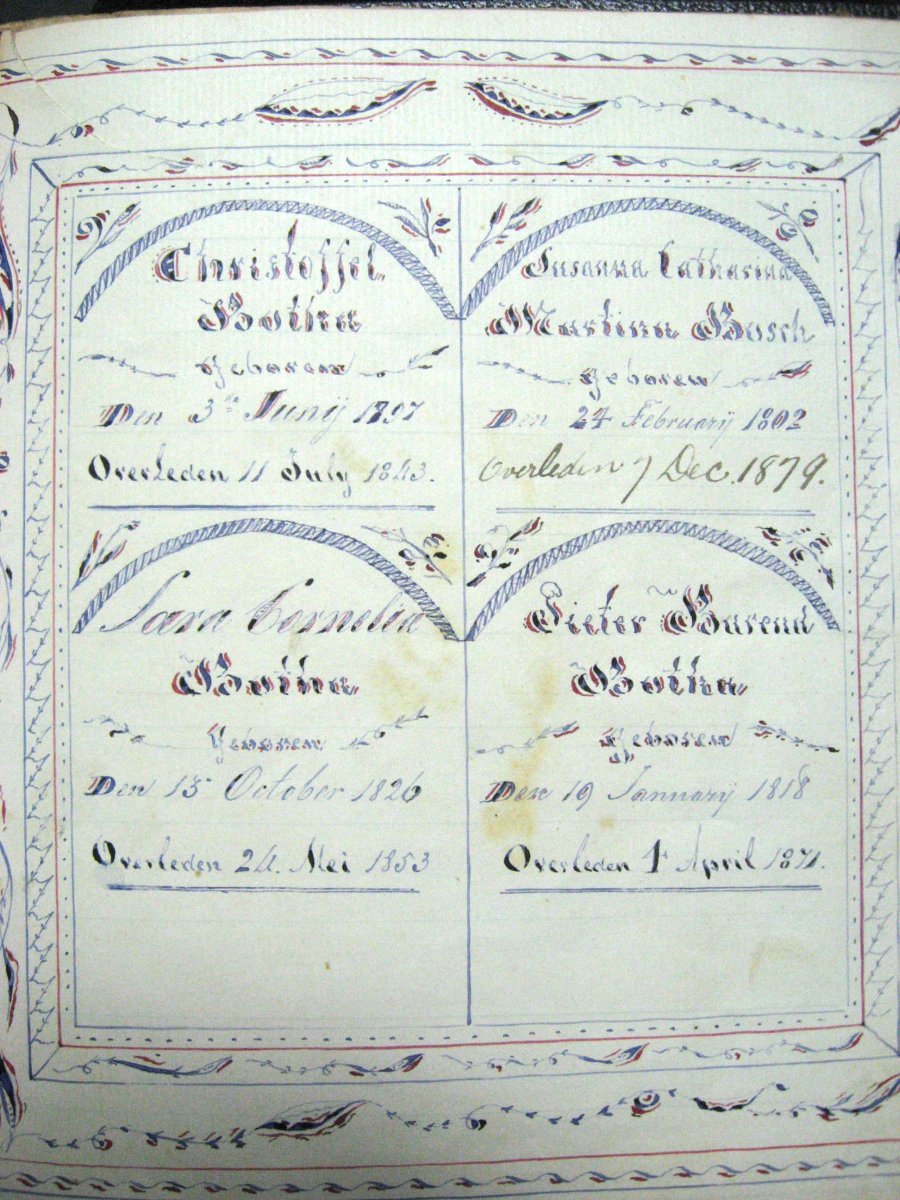 Christoffel
Botha
Geboren
Den 3de Junij 1797
Overleden 11 July 1843.
Susanna Catharina
Martina Bosch
Geboren
Den 24 Februarij 1802
Overleden 7 Dec. 1879.
Sara Cornelia
Botha
Geboren
Den 15 October 1826
Overleden 24. Mei 1853
Pieter Barend
Botha
Geboren
Den 19 Januarij 1818
Overleden 1t April 1871.